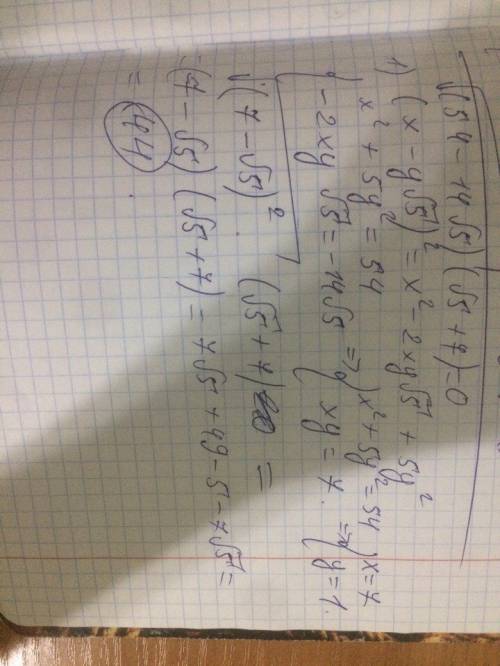 √(54 - 14√5) (√5 + 7) = 0
1) (x - y√5)² = x² - 2xy√5 + 5y²
{ x² + 5y² = 54
{ -2xy√5 = -14√5 => { x² + 5y² = 54 { xy = 7 => { x = 7 { y = 1.
√(7 - √5)² · (√5 + 7) =
= (7 - √5) (√5 + 7) = 7√5 + 49 - 5 - 7√5 =
= 44